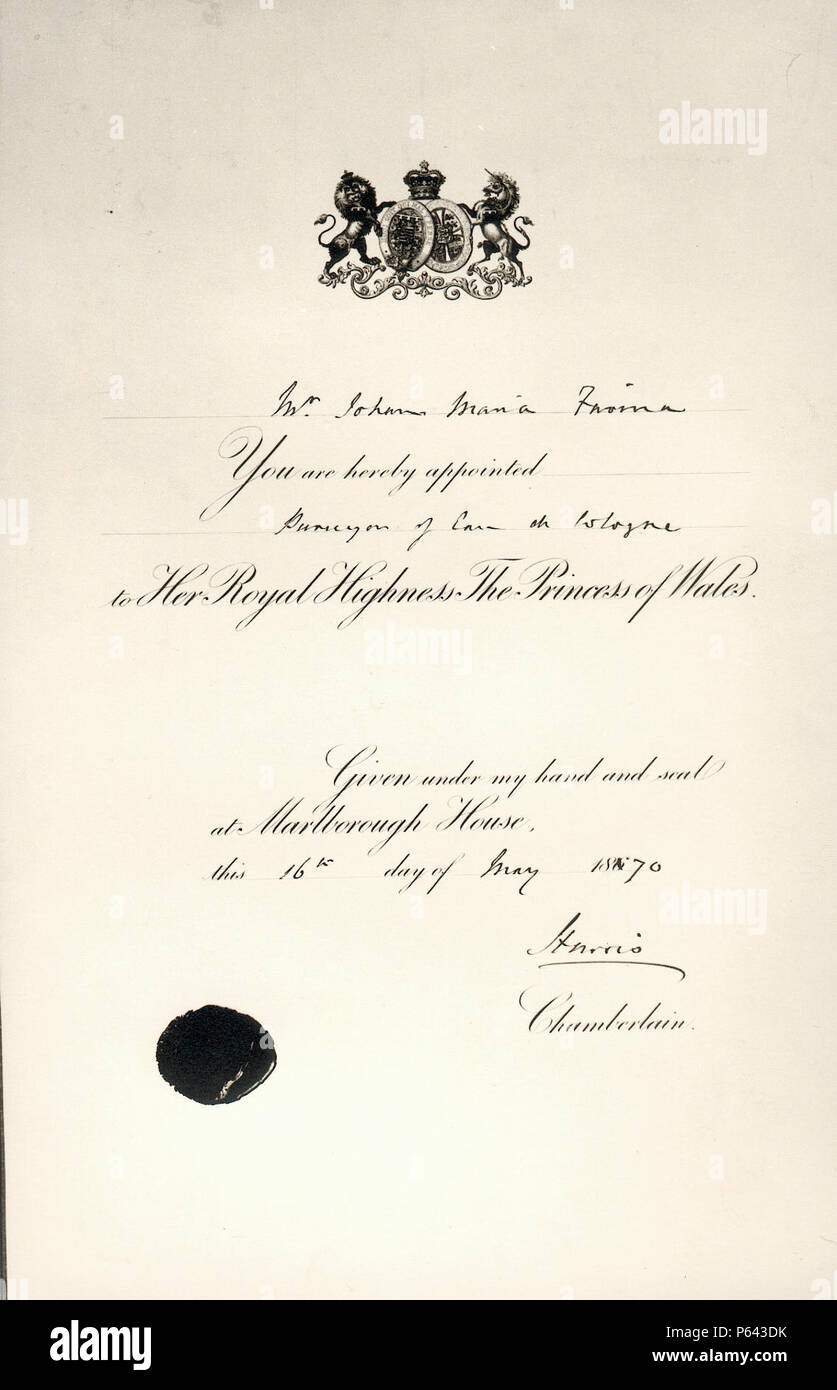 Mr. Johann Maria Farina
You are hereby appointed
Purveyor of Eau de Cologne
to Her Royal Highness The Princess of Wales.
Given under my hand and seal
at Marlborough House,
this 16th day of May 1870
Harris
Chamberlain.
a
alamy
a
a
a
a
alamy
a
a
a
alamy
a
a
alamy
Image ID: P643DK
www.alamy.com